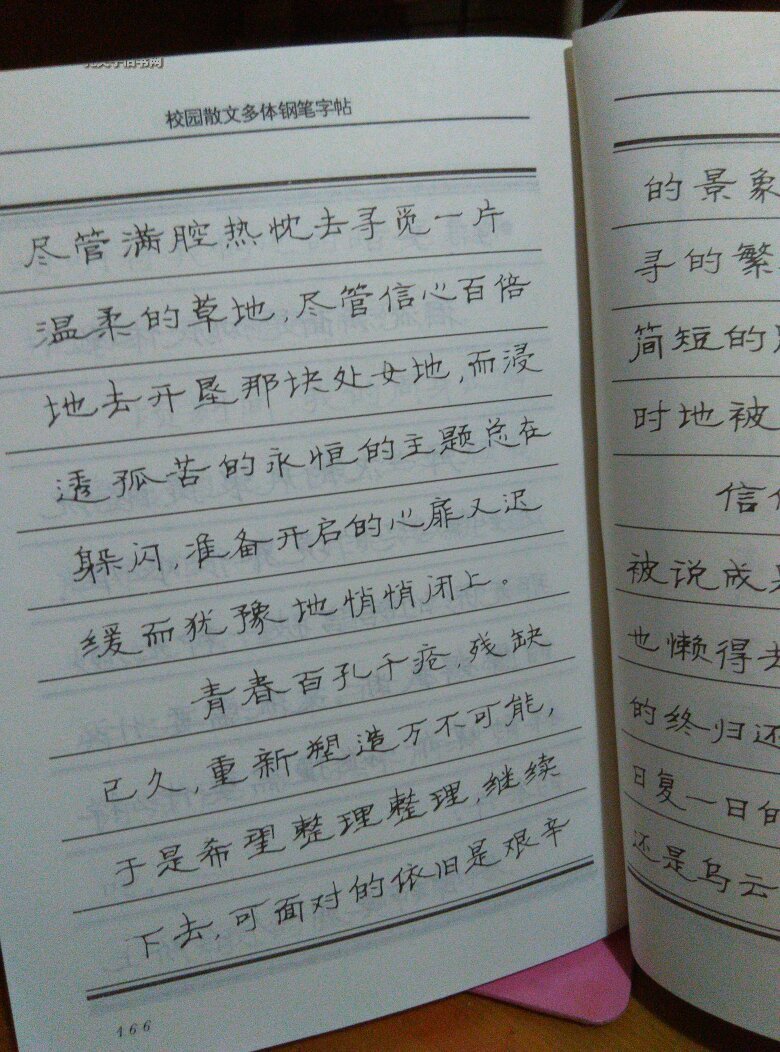 校园散文多体钢笔字帖
尽管满腔热忱去寻觅一片
温柔的草地,尽管信心百倍
地去开垦那块处女地,而浸
透孤苦的永恒的主题总在
躲闪,准备开启的心扉又迟
缓而犹豫地悄悄闭上。
青春百孔千疮,残缺
已久,重新塑造万不可能,
于是希望整理整理,继续
下去,可面对的依旧是艰辛
166
的景象
寻的繁
简短的
时地被
信
被说成
也懒得去
的终归还
日复一日的
还是乌云